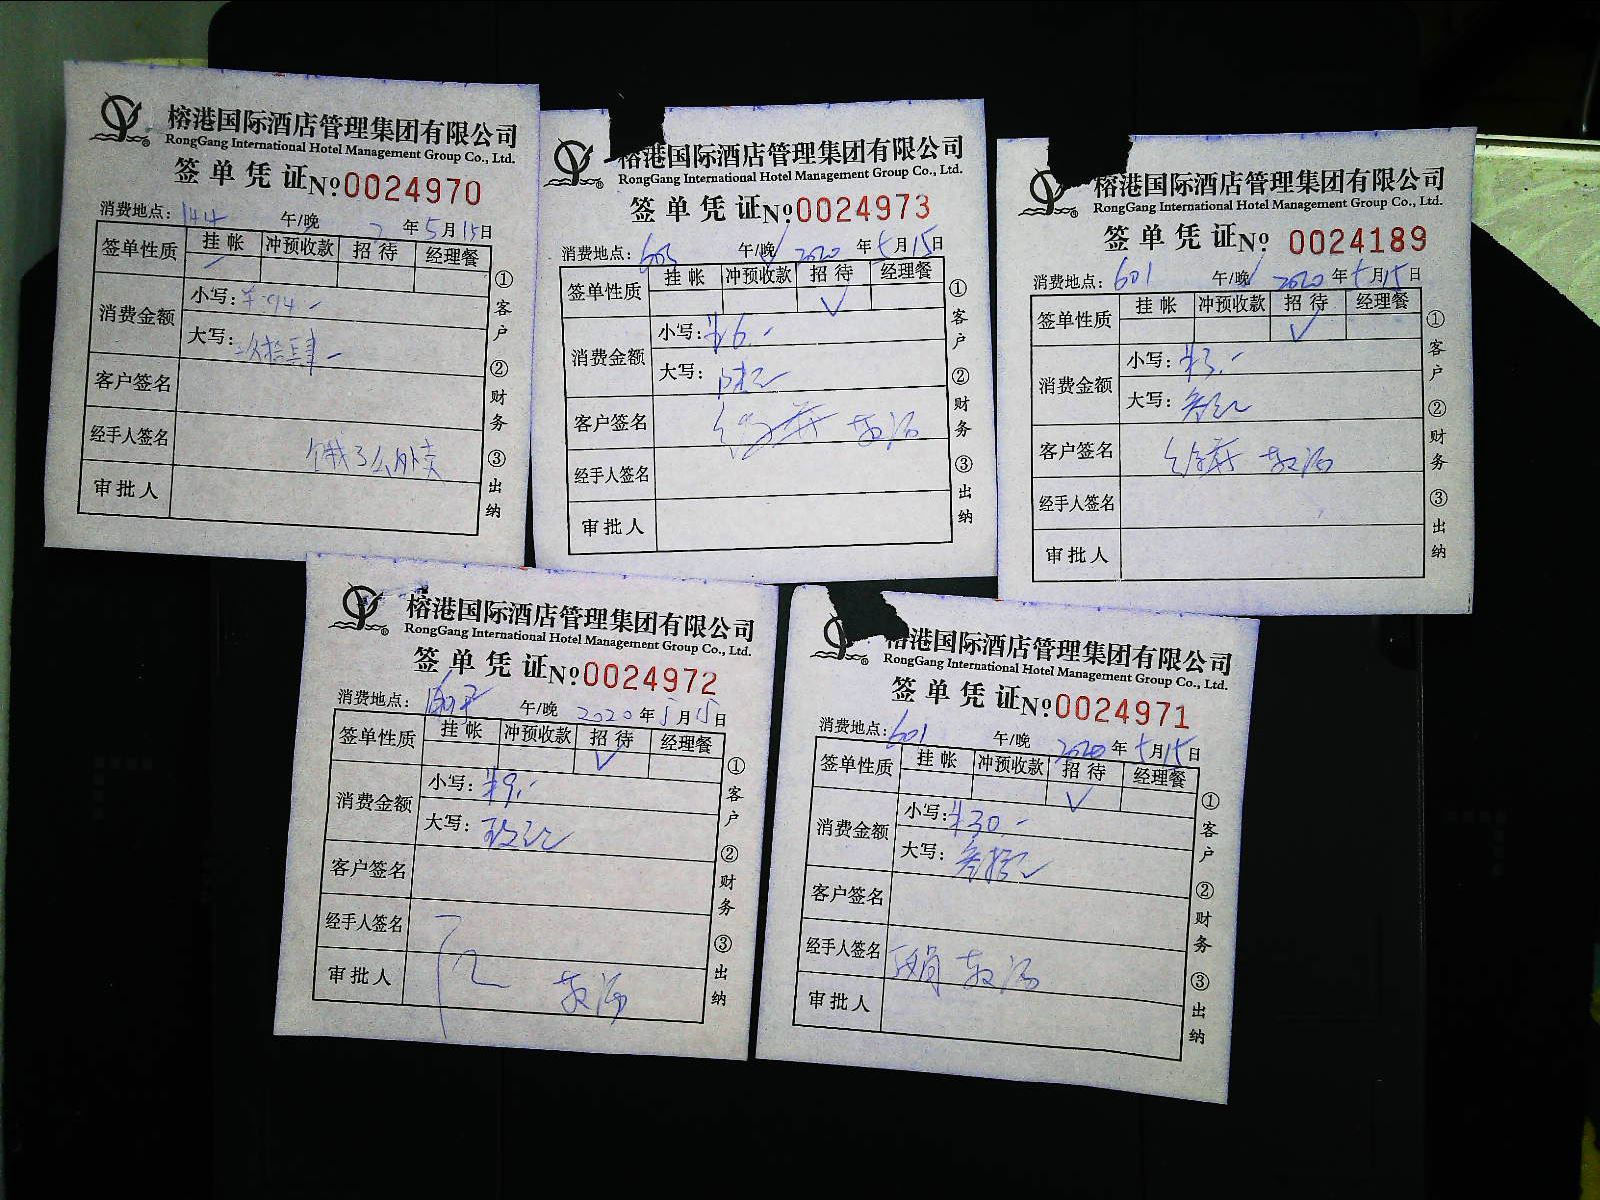 榕港国际酒店管理集团有限公司
RongGang International Hotel Management Group Co., Ltd.
签单凭证 № 0024970
消费地点: 144 午/晚 年 5月15日
签单性质 挂帐 冲预收款 招待 经理餐
消费金额 小写: ¥94-
大写: 玖拾肆-
客户签名
经手人签名 饿了么外卖
审批人
①客户 ②财务 ③出纳
榕港国际酒店管理集团有限公司
RongGang International Hotel Management Group Co., Ltd.
签单凭证 № 0024973
消费地点: 603 午/晚 2020年5月15日
签单性质 挂帐 冲预收款 招待 经理餐
✓
消费金额 小写: ¥6.-
大写: 陆元
客户签名
经手人签名
审批人
①客户 ②财务 ③出纳
榕港国际酒店管理集团有限公司
RongGang International Hotel Management Group Co., Ltd.
签单凭证 № 0024189
消费地点: 601 午/晚 2020年5月15日
签单性质 挂帐 冲预收款 招待 经理餐
✓
消费金额 小写: ¥3.-
大写: 叁元
客户签名
经手人签名
审批人
①客户 ②财务 ③出纳
榕港国际酒店管理集团有限公司
RongGang International Hotel Management Group Co., Ltd.
签单凭证 № 0024972
消费地点: 午/晚 2020年5月15日
签单性质 挂帐 冲预收款 招待 经理餐
✓
消费金额 小写: ¥9.-
大写: 玖元
客户签名
经手人签名
审批人
①客户 ②财务 ③出纳
榕港国际酒店管理集团有限公司
RongGang International Hotel Management Group Co., Ltd.
签单凭证 № 0024971
消费地点: 601 午/晚 2020年5月15日
签单性质 挂帐 冲预收款 招待 经理餐
✓
消费金额 小写: ¥30.-
大写: 叁拾元
客户签名
经手人签名
审批人
①客户 ②财务 ③出纳